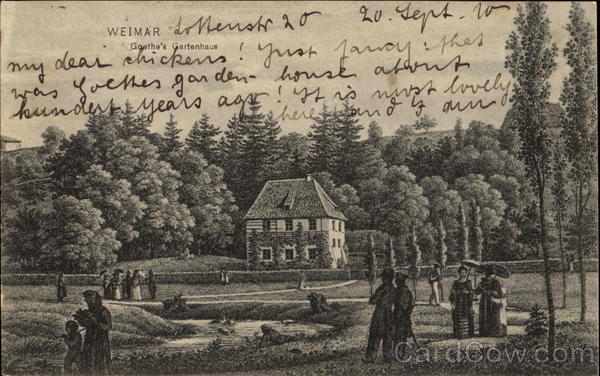 WEIMAR Lottenstr 20 20. Sept. 10
Goethe's Gartenhaus
my dear chickens! Just fancy: that
was Goethes garden-house about
hundert years ago! It is most lovely
here and I am
CardCow.com